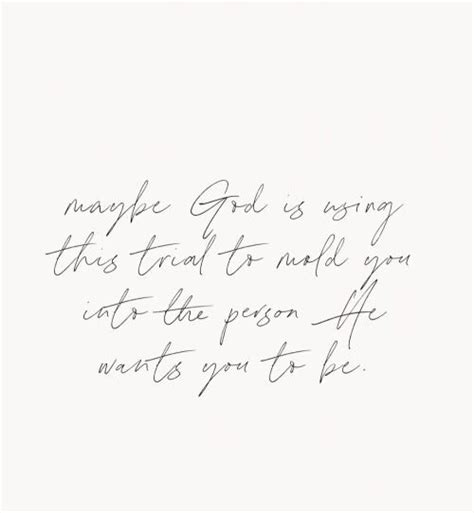 maybe God is using
this trial to mold you
into the person He
wants you to be.